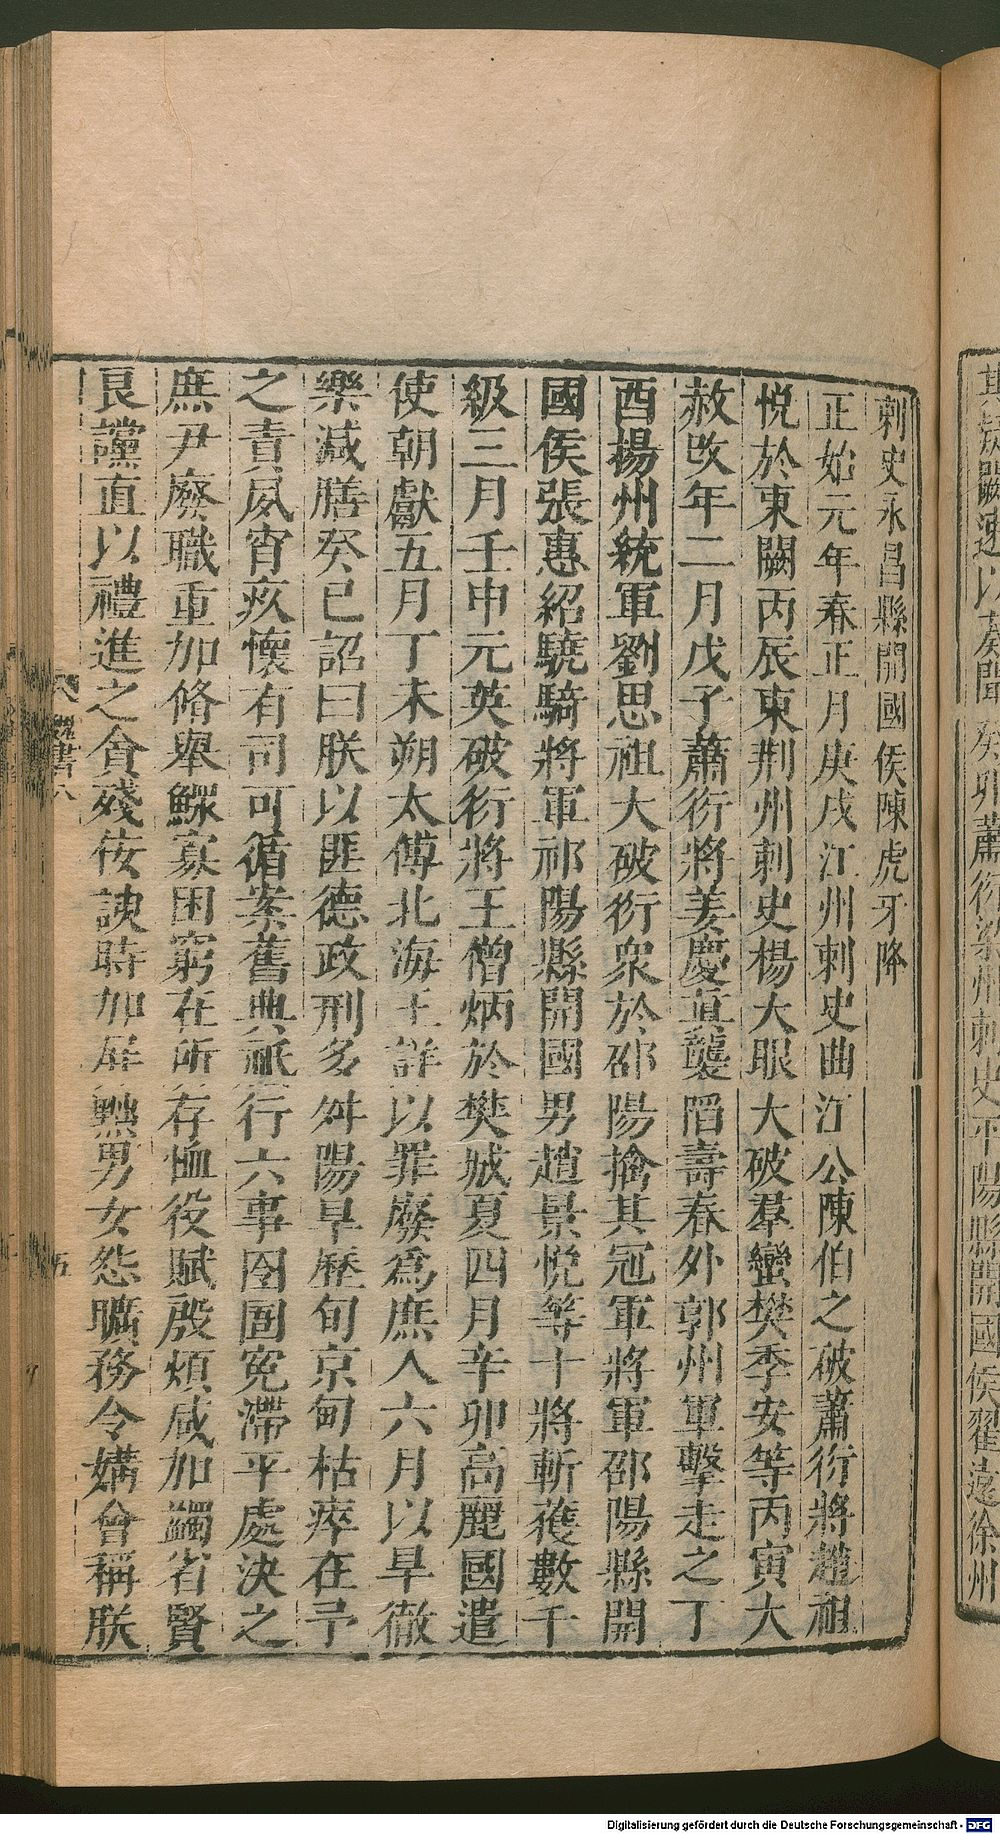 其城闕速以奏聞癸卯蕭衍梁州刺史平陽縣開國侯翟遠徐州
刺史永昌縣開國侯陳虎牙降
正始元年春正月庚戌江州刺史曲江公陳伯之破蕭衍將趙祖
悅於東關丙辰東荆州刺史楊大眼大破羣蠻樊季安等丙寅大
赦改年二月戊子蕭衍將姜慶眞襲陷壽春外郭州軍擊走之丁
酉揚州統軍劉思祖大破衍衆於邵陽擒其冠軍將軍邵陽縣開
國侯張惠紹驍騎將軍祁陽縣開國男趙景悅等十將斬獲數千
級三月壬申元英破衍將王僧炳於樊城夏四月辛卯高麗國遣
使朝獻五月丁未朔太傅北海王詳以罪廢爲庶人六月以旱徹
樂減膳癸巳詔曰朕以匪德政刑多舛陽旱歷旬京甸枯瘁在予
之責夙宵疚懷有司可循案舊典祇行六事囹圄冤滯平處決之
庶尹廢職重加脩舉鰥寡困窮在所存恤役賦殷煩咸加蠲省賢
良讜直以禮進之貪殘佞諛時加屏黜男女怨曠務令媾會稱朕
魏書八
五
Digitalisierung gefördert durch die Deutsche Forschungsgemeinschaft - DFG